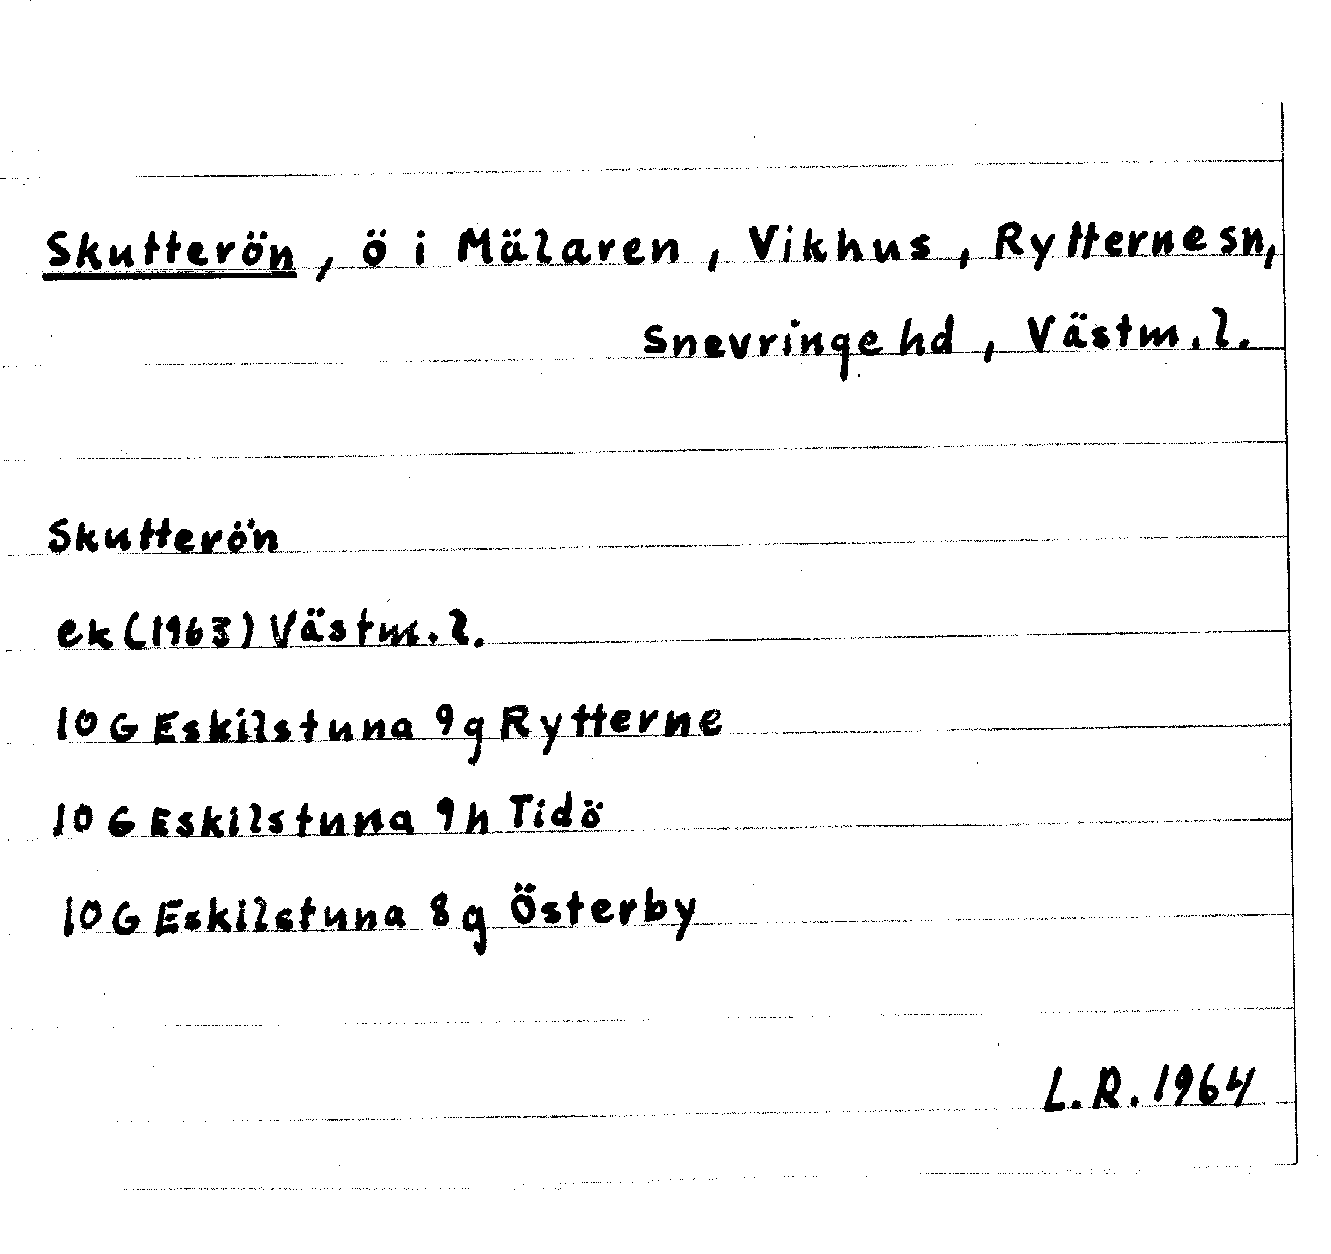 Skutterön, ö i Mälaren, Vikhus, Rytterne sn,
Snevringe hd, Västm. l.
Skutterön
ek (1963) Västm. l.
10 G Eskilstuna 9g Rytterne
10 G Eskilstuna 9h Tidö
10 G Eskilstuna 8g Österby
L. R. 1964